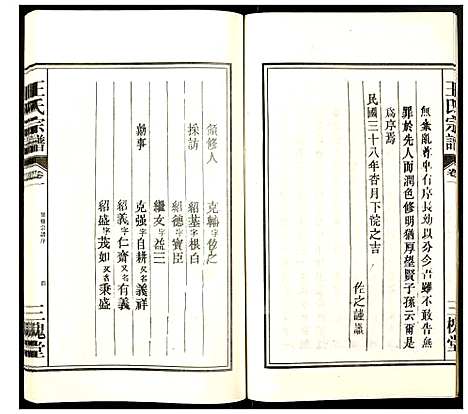 王氏宗譜
卷一
三槐堂
無紊亂尊卑有序長幼以分今吾雖不敢告無
罪於先人而潤色修明猶厚望賢子孫云爾是
為序焉
民國三十八年杏月下浣之吉
佐之謹識
領修人 克輔字佐之
採訪 紹基字根白
紹德字寶臣
繼文字益三
勷事 克强字自耕又名義祥
紹義字仁齋又名有義
紹盛字茂如又名秉盛
王氏宗譜
卷一
四
三槐堂